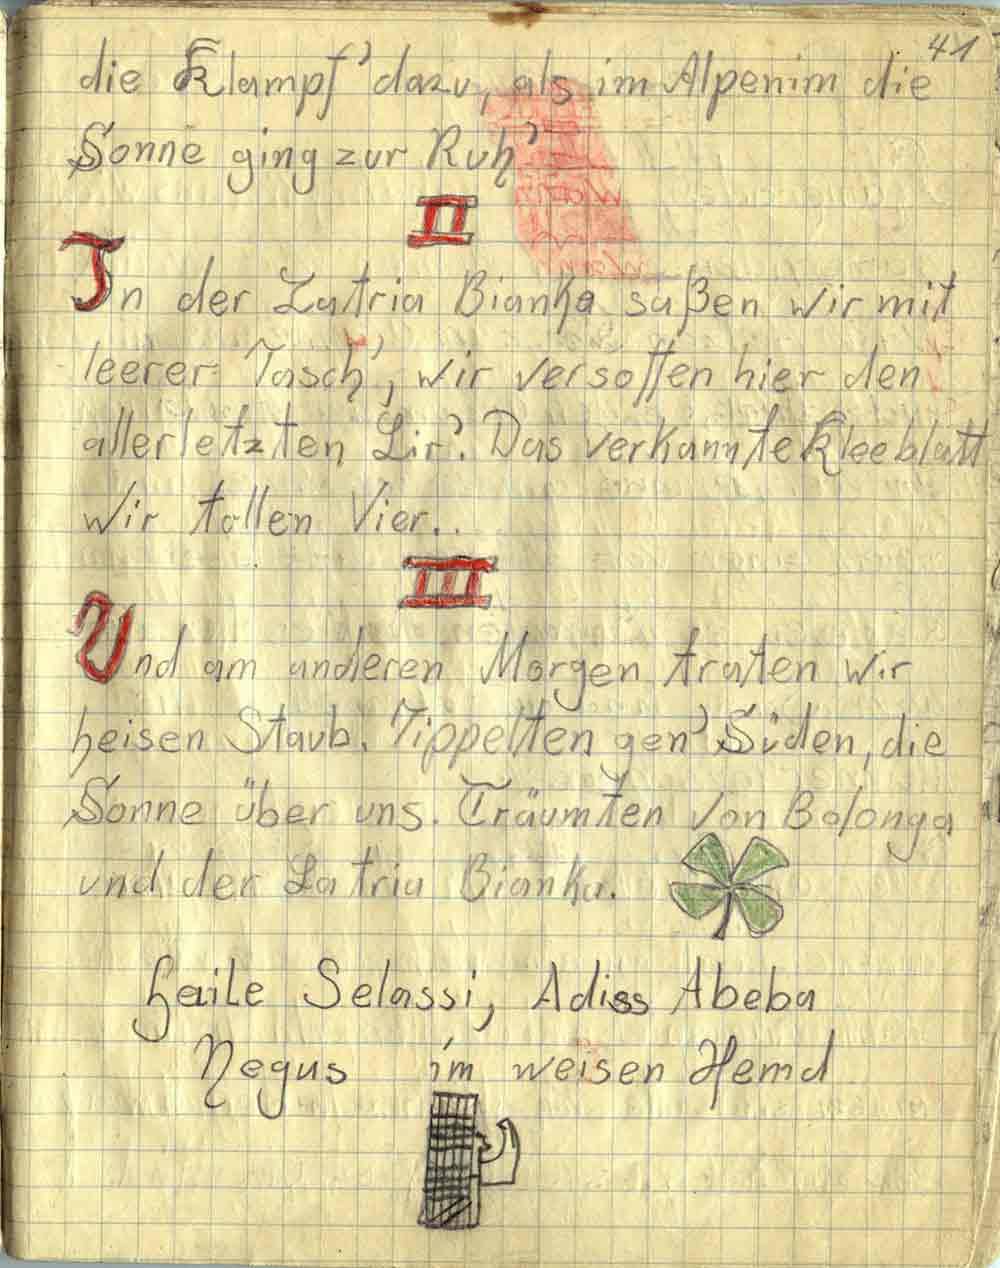 41
die Klampf' dazu, als im Alpenim die
Sonne ging zur Ruh'
II
In der Latria Bianka saßen wir mit
leerer Tasch', wir versoffen hier den
allerletzten Lir'. Das verkannte Kleeblatt
wir tollen Vier..
III
Und am anderen Morgen traten wir
heisen Staub. Tippelten gen' Süden, die
Sonne über uns. Träumten von Bolonga
und der Latria Bianka.
Haile Selassi, Adiss Abeba
Negus im weisen Hemd